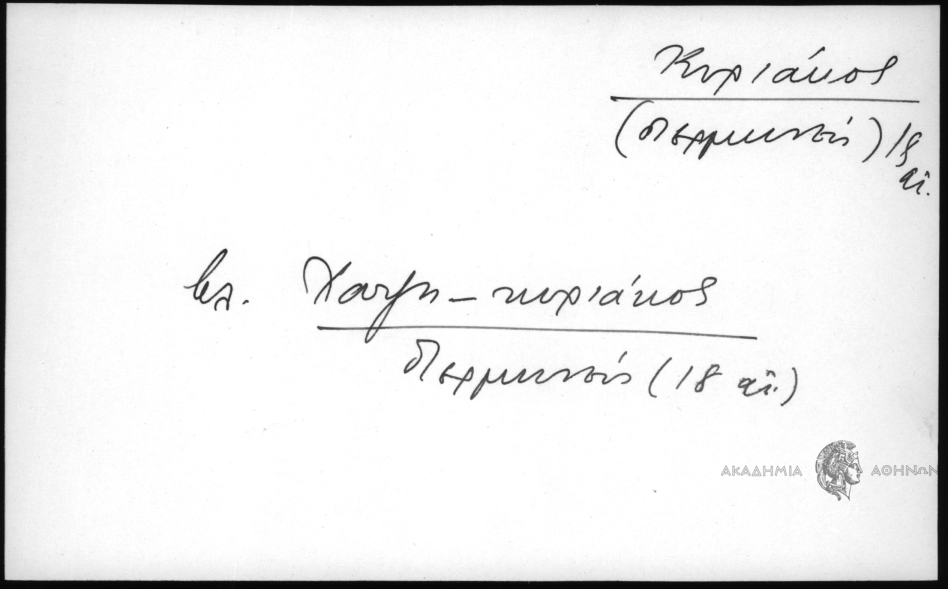 Κυριάκος
(διερμηνεύς) 18 αἰ.
βλ. Χατζη-κυριάκος
διερμηνεύς (18 αἰ.)
ΑΚΑΔΗΜΙΑ ΑΘΗΝΩΝ